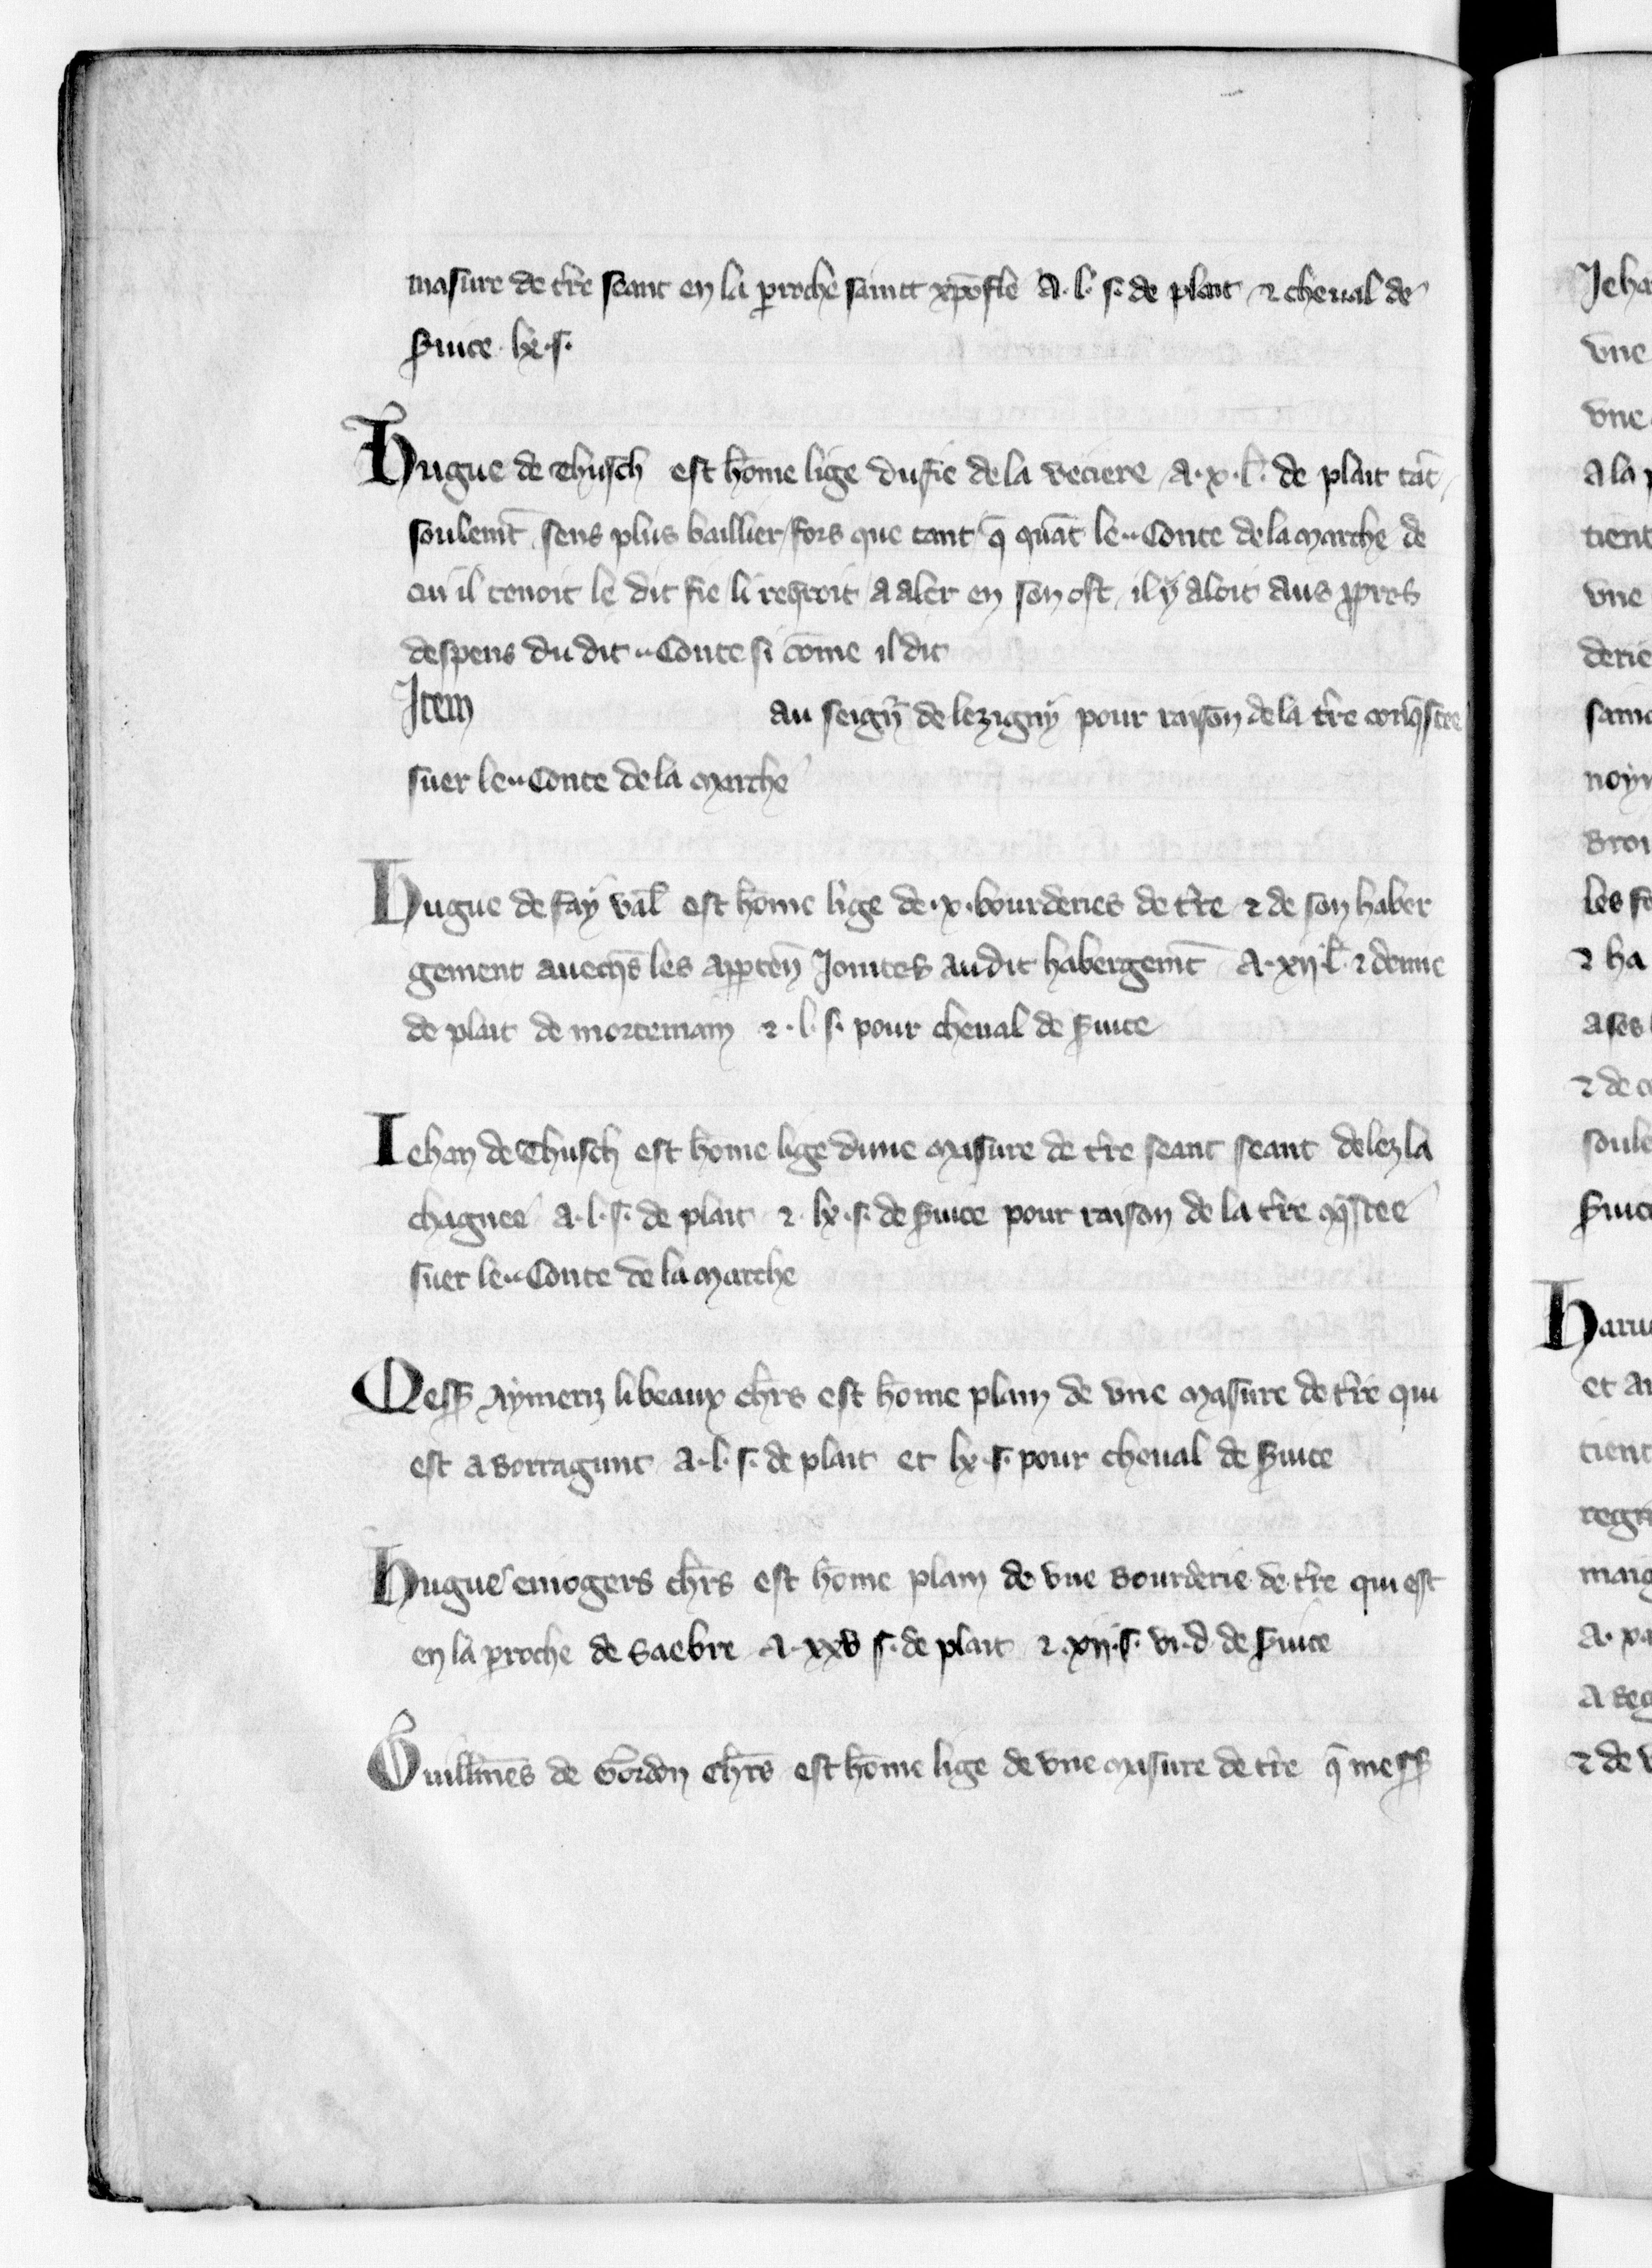 masure de tr̄e seant en la ꝑroche saint xp̄ofle A .l. s. de plait ⁊ cheual de
ẜuice .lx. s.
Hugue de Thusch est hōme lige du fie de la veciere .A .x. l̄. de plait tāt
soulemt̄ sens plus baillier fors que tant q̄ quāt le .. Conte de la marche de
cui il tenoit le dit fie li req̄roit a aler en son ost il y aloit aus ꝓpres
despens du dit .. Conte si cōme il dit
Item au seign̄ de lezigny pour raison de la tr̄e conq̄stee
suer le .. Conte de la marche
Hugue de fay val̄ est hōme lige de .x. bourderies de tr̄e ⁊ de son haber
gement auecq̄s les apꝑten̄ Jointes au dit habergemt̄ A .xij. l̄. ⁊ demie
de plait de mortemain ⁊ .l. s. pour cheual de ẜuice
Iehan de Thusch est hōme lige dune masure de tr̄e seant seant delez la
chagnee A .l. s. de plait ⁊ .lx. s. de ẜuice pour raison de la tr̄e ꝯq̄stee
suer le .. Conte de la marche
Messꝫ Aymeriz li beaux ch̄rs est hōme plain de vne masure de tr̄e qui
est a Borragunt A .l. s. de plait et lx .s. pour cheual de ẜuice
Hugue eniogers ch̄rs est hōme plain de vne Bourderie de tr̄e qui est
en la ꝑroche de Saebre A .xxv s. de plait ⁊ .xij. s. vi. d. de ẜuice
Guillm̄es de Gordon ch̄rs est hōme lige de vne masure de tr̄e q̄ messꝫ